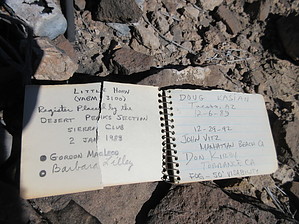 LITTLE HORN
(VABM 3100)
Register Placed by the
DESERT PEAKS SECTION
SIERRA CLUB
2 JAN 1989
GORDON MACLEOD
Barbara Lilley
DOUG KASIAN
2-6-93
12-29-92
JOHN VITZ
MANHATTAN BEACH CA
DON
TORRANCE CA
FOG - 50' VISIBILITY